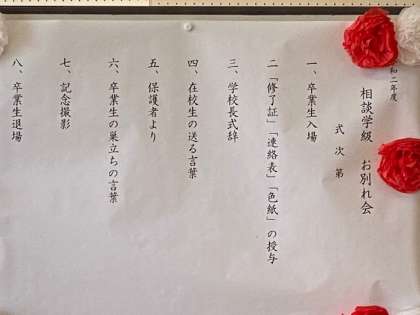 和二年度
相談学級 お別れ会
式次第
一、卒業生入場
二「修了証」「連絡表」「色紙」の授与
三、学校長式辞
四、在校生の送る言葉
五、保護者より
六、卒業生の巣立ちの言葉
七、記念撮影
八、卒業生退場